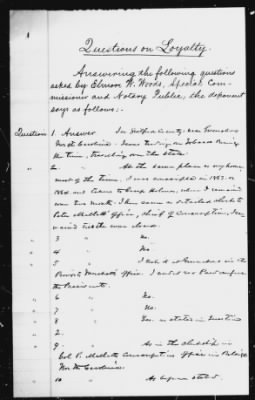 Questions on Loyalty.
Answering the following questions
asked by Elmore W. Woods, Special Com-
missioner and Notary Public, the deponent
says as follows:-
Question 1. Answer In Guilford County, near Greensboro
North Carolina.
the time, travelling over the state.
" 2. " At the same place as my home
most of the time. I was conscripted in 1863 or
1864 and taken to Camp Holmes, where I remained
two months. I then came a detailed clerk to
Peter Mallett's office, chief of Conscription. I re-
mained till the war closed.
" 3 " No.
" 4 " No.
" 5 " I in the
Provost Marshal's office. I
the Presidents.
" 6 " No.
" 7 " No.
" 8 " as stated in Question
2.
" 9 " As in the clerkship in
Col. P. Mallett's Conscription office in Raleigh
North Carolina.
" 10 " As before stated.